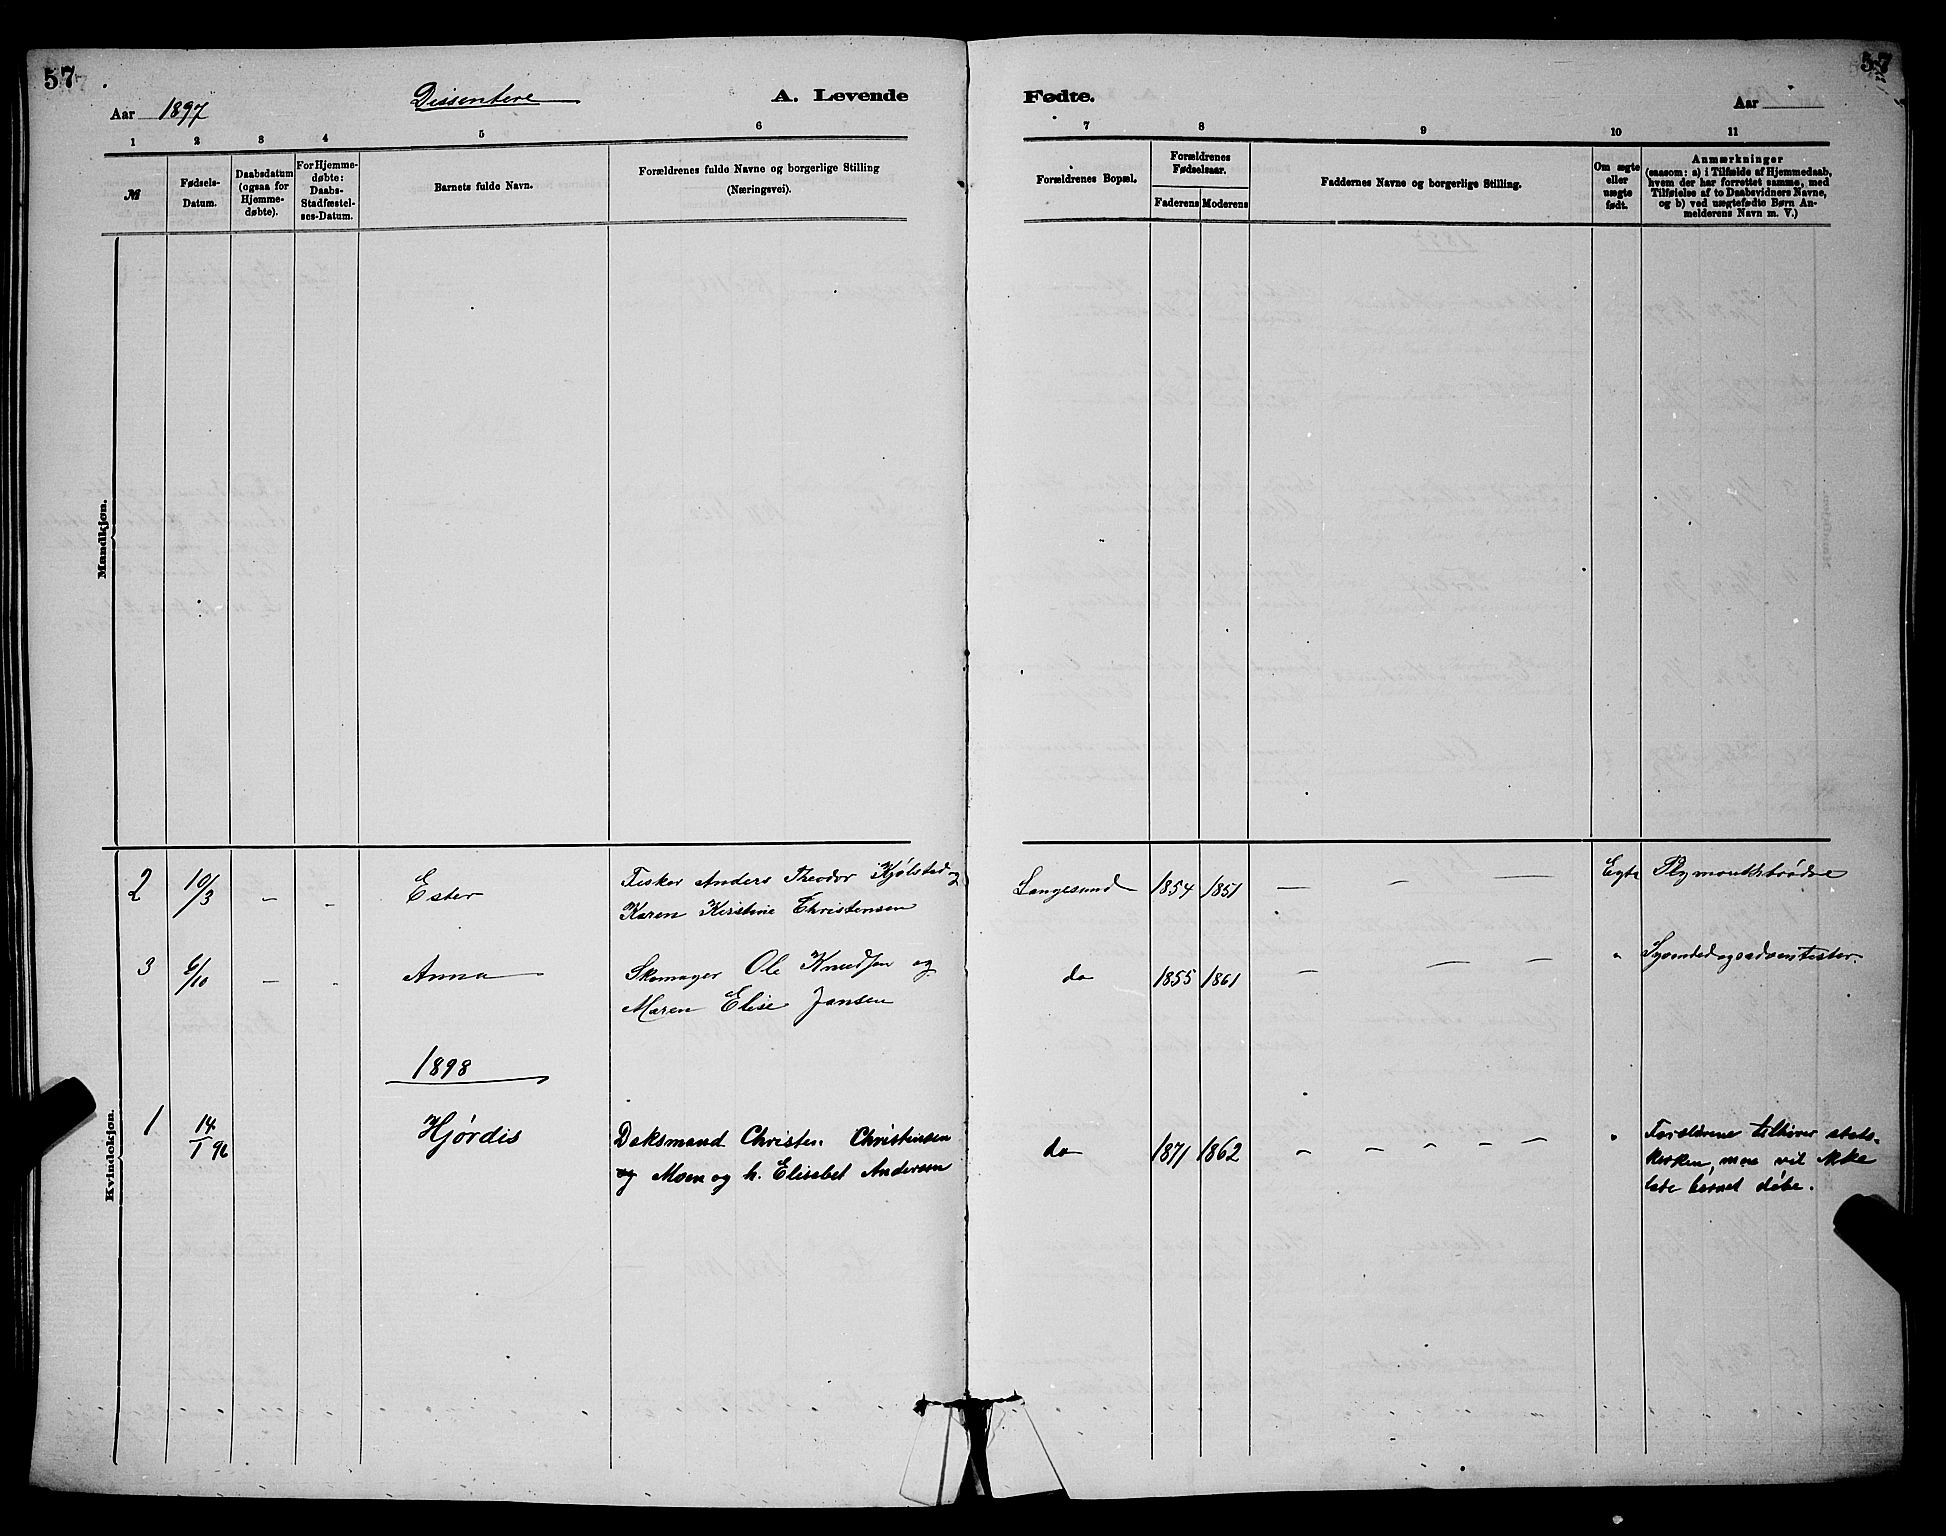 57
57
Aar 1897
Dissentere
A. Levende
Fødte.
Aar
1 2 3 4 5 6 7 8 9 10 11
№
Fødsels-
Datum.
Daabsdatum
(ogsaa for
Hjemme-
døbte).
For Hjemme-
døbte:
Daabs-
Stadfæstel-
ses-Datum.
Barnets fulde Navn.
Forældrenes fulde Navne og borgerlige Stilling
(Næringsvei).
Forældrenes Bopæl.
Forældrenes
Fødselsaar.
Faderens Moderens
Faddernes Navne og borgerlige Stilling.
Om ægte
eller
uægte
født.
Anmærkninger
(saasom: a) i Tilfælde af Hjemmedaab,
hvem der har forrettet samme, med
Tilføielse af to Daabsvidners Navne,
og b) ved uægtefødte Børn An-
melderens Navn m. V.)
Mandkjøn.
Kvindekjøn.
2 10/3 - - Ester Fisker Anders Theodor Kjølsted og
Karen Kirstine Christensen
Langesund 1854 1851 — — — Egte Plymouthbrødre
3 6/10 - - Anna Skomager Ole Knudsen og
Maren Elise Jansen
do 1855 1861 — — — " Syvendedagsadventister.
1898
1 14/1 98 Hjørdis Doksmand Christen Christensen
og Moen og h. Elisabet Andersen
do 1871 1862 — — — — " Forældrene tilhører stats-
kirken, men vil ikke
lade barnet døbe.